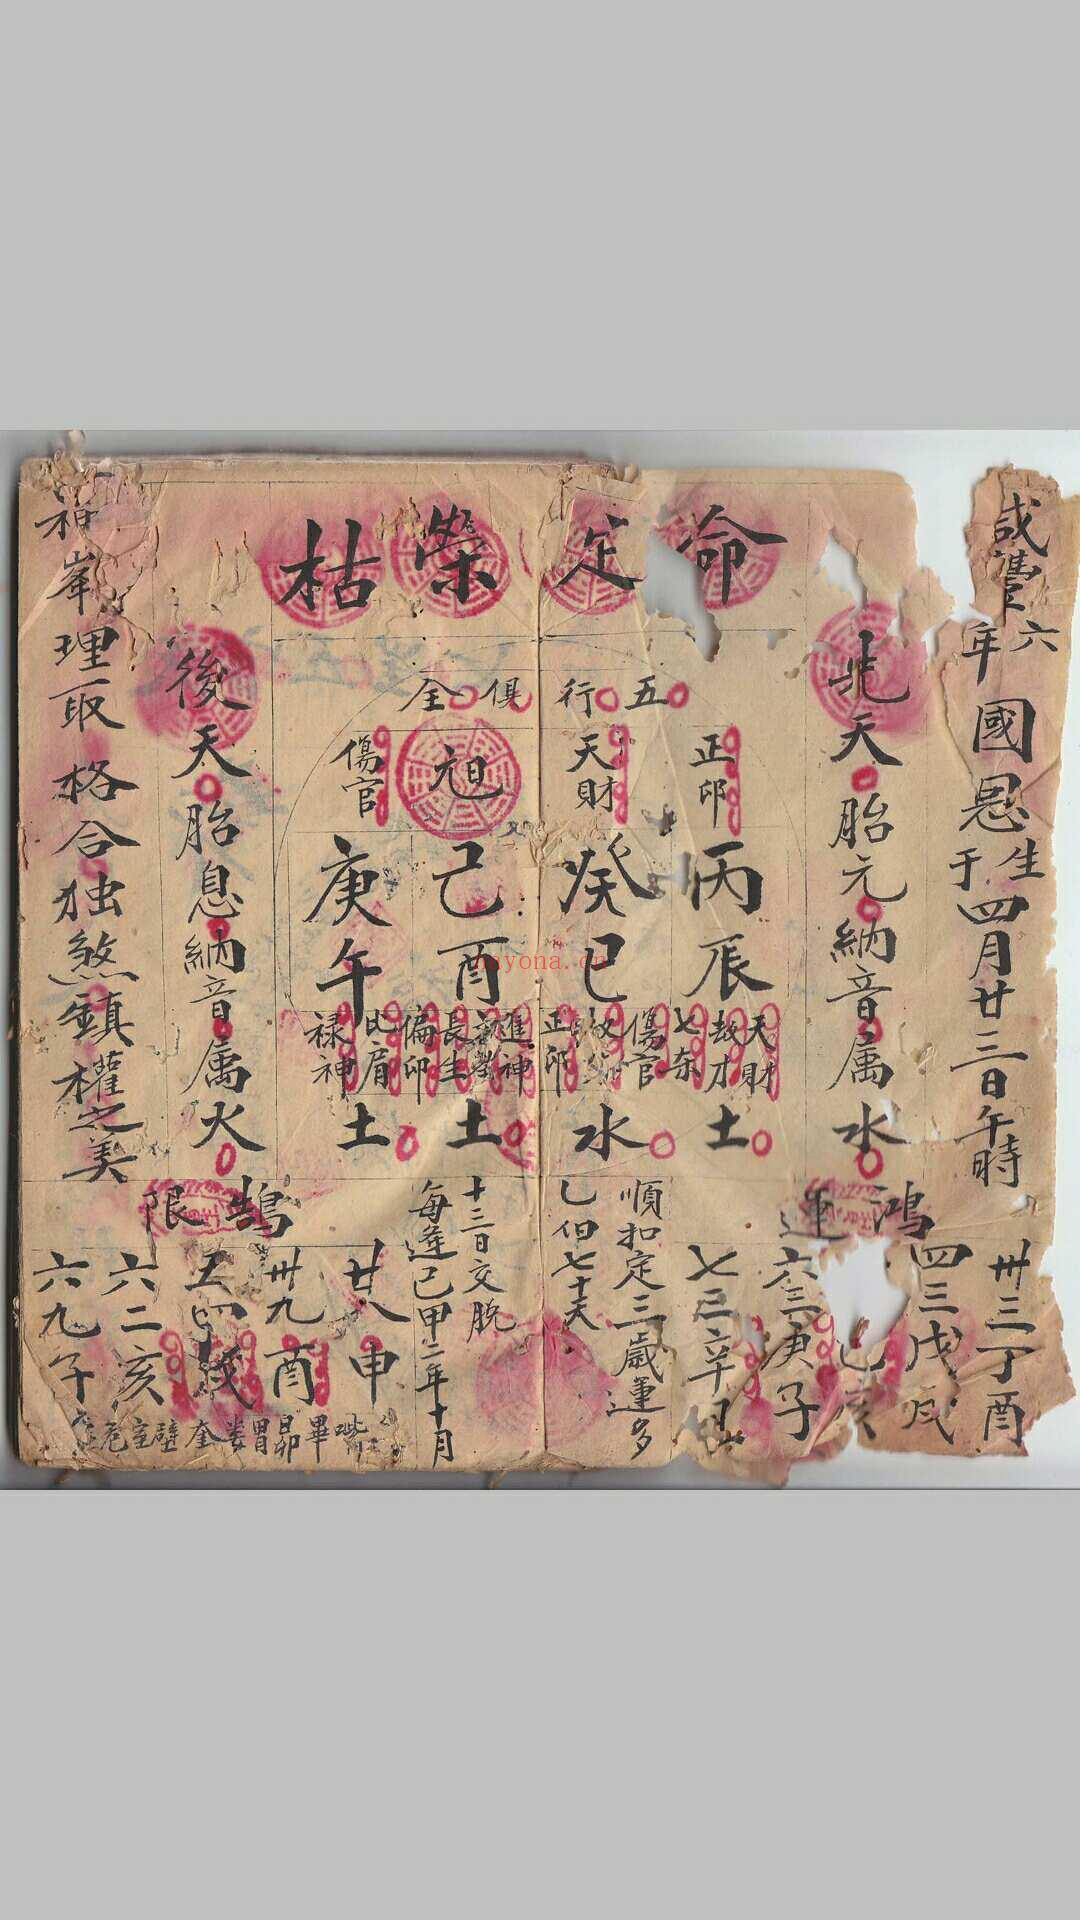 咸豐六年國恩生于四月廿三日午時
命定榮枯
先天胎元納音属水
五行俱全
正印
天財
旭
傷官
丙辰
癸巳
己酉
庚午
天財
七杀
傷官
正印
進神
長生
偏印
比肩
禄神
土
水
土
土
後天胎息納音属火
峯理取格合独煞鎮權之美
鴻運
卅三丁酉
四三戊戌
六三庚子
七三辛丑
順扣定三歲運多
七十天
十三日交脱
每逢己甲二年十月
鵠限
廿八申
卅九酉
五四戌
六二亥
六九子
畢昴胃娄奎壁室危